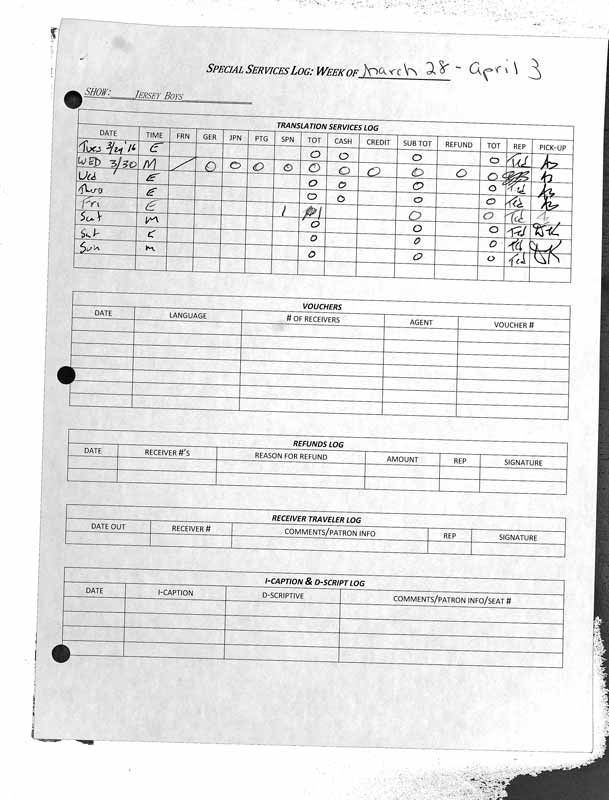 SPECIAL SERVICES LOG: WEEK OF March 28 - April 3
SHOW: JERSEY BOYS
TRANSLATION SERVICES LOG
DATE TIME FRN GER JPN PTG SPN TOT CASH CREDIT SUB TOT REFUND TOT REP PICK-UP
Tues 3/29/16 E 0 0 0 0 Ted
WED 3/30 M / 0 0 0 0 0 0 0 0 0 0
Wed E 0 0 0 0 Ted
Thurs E 0 0 0 0 Ted
Fri E 0 0 0 0 Ted
Sat M 1 0 0 Ted
Sat E 0 0 0 Ted DK
Sun M 0 0 0 Ted DK
VOUCHERS
DATE LANGUAGE # OF RECEIVERS AGENT VOUCHER #
REFUNDS LOG
DATE RECEIVER #'S REASON FOR REFUND AMOUNT REP SIGNATURE
RECEIVER TRAVELER LOG
DATE OUT RECEIVER # COMMENTS/PATRON INFO REP SIGNATURE
I-CAPTION & D-SCRIPT LOG
DATE I-CAPTION D-SCRIPTIVE COMMENTS/PATRON INFO/SEAT #